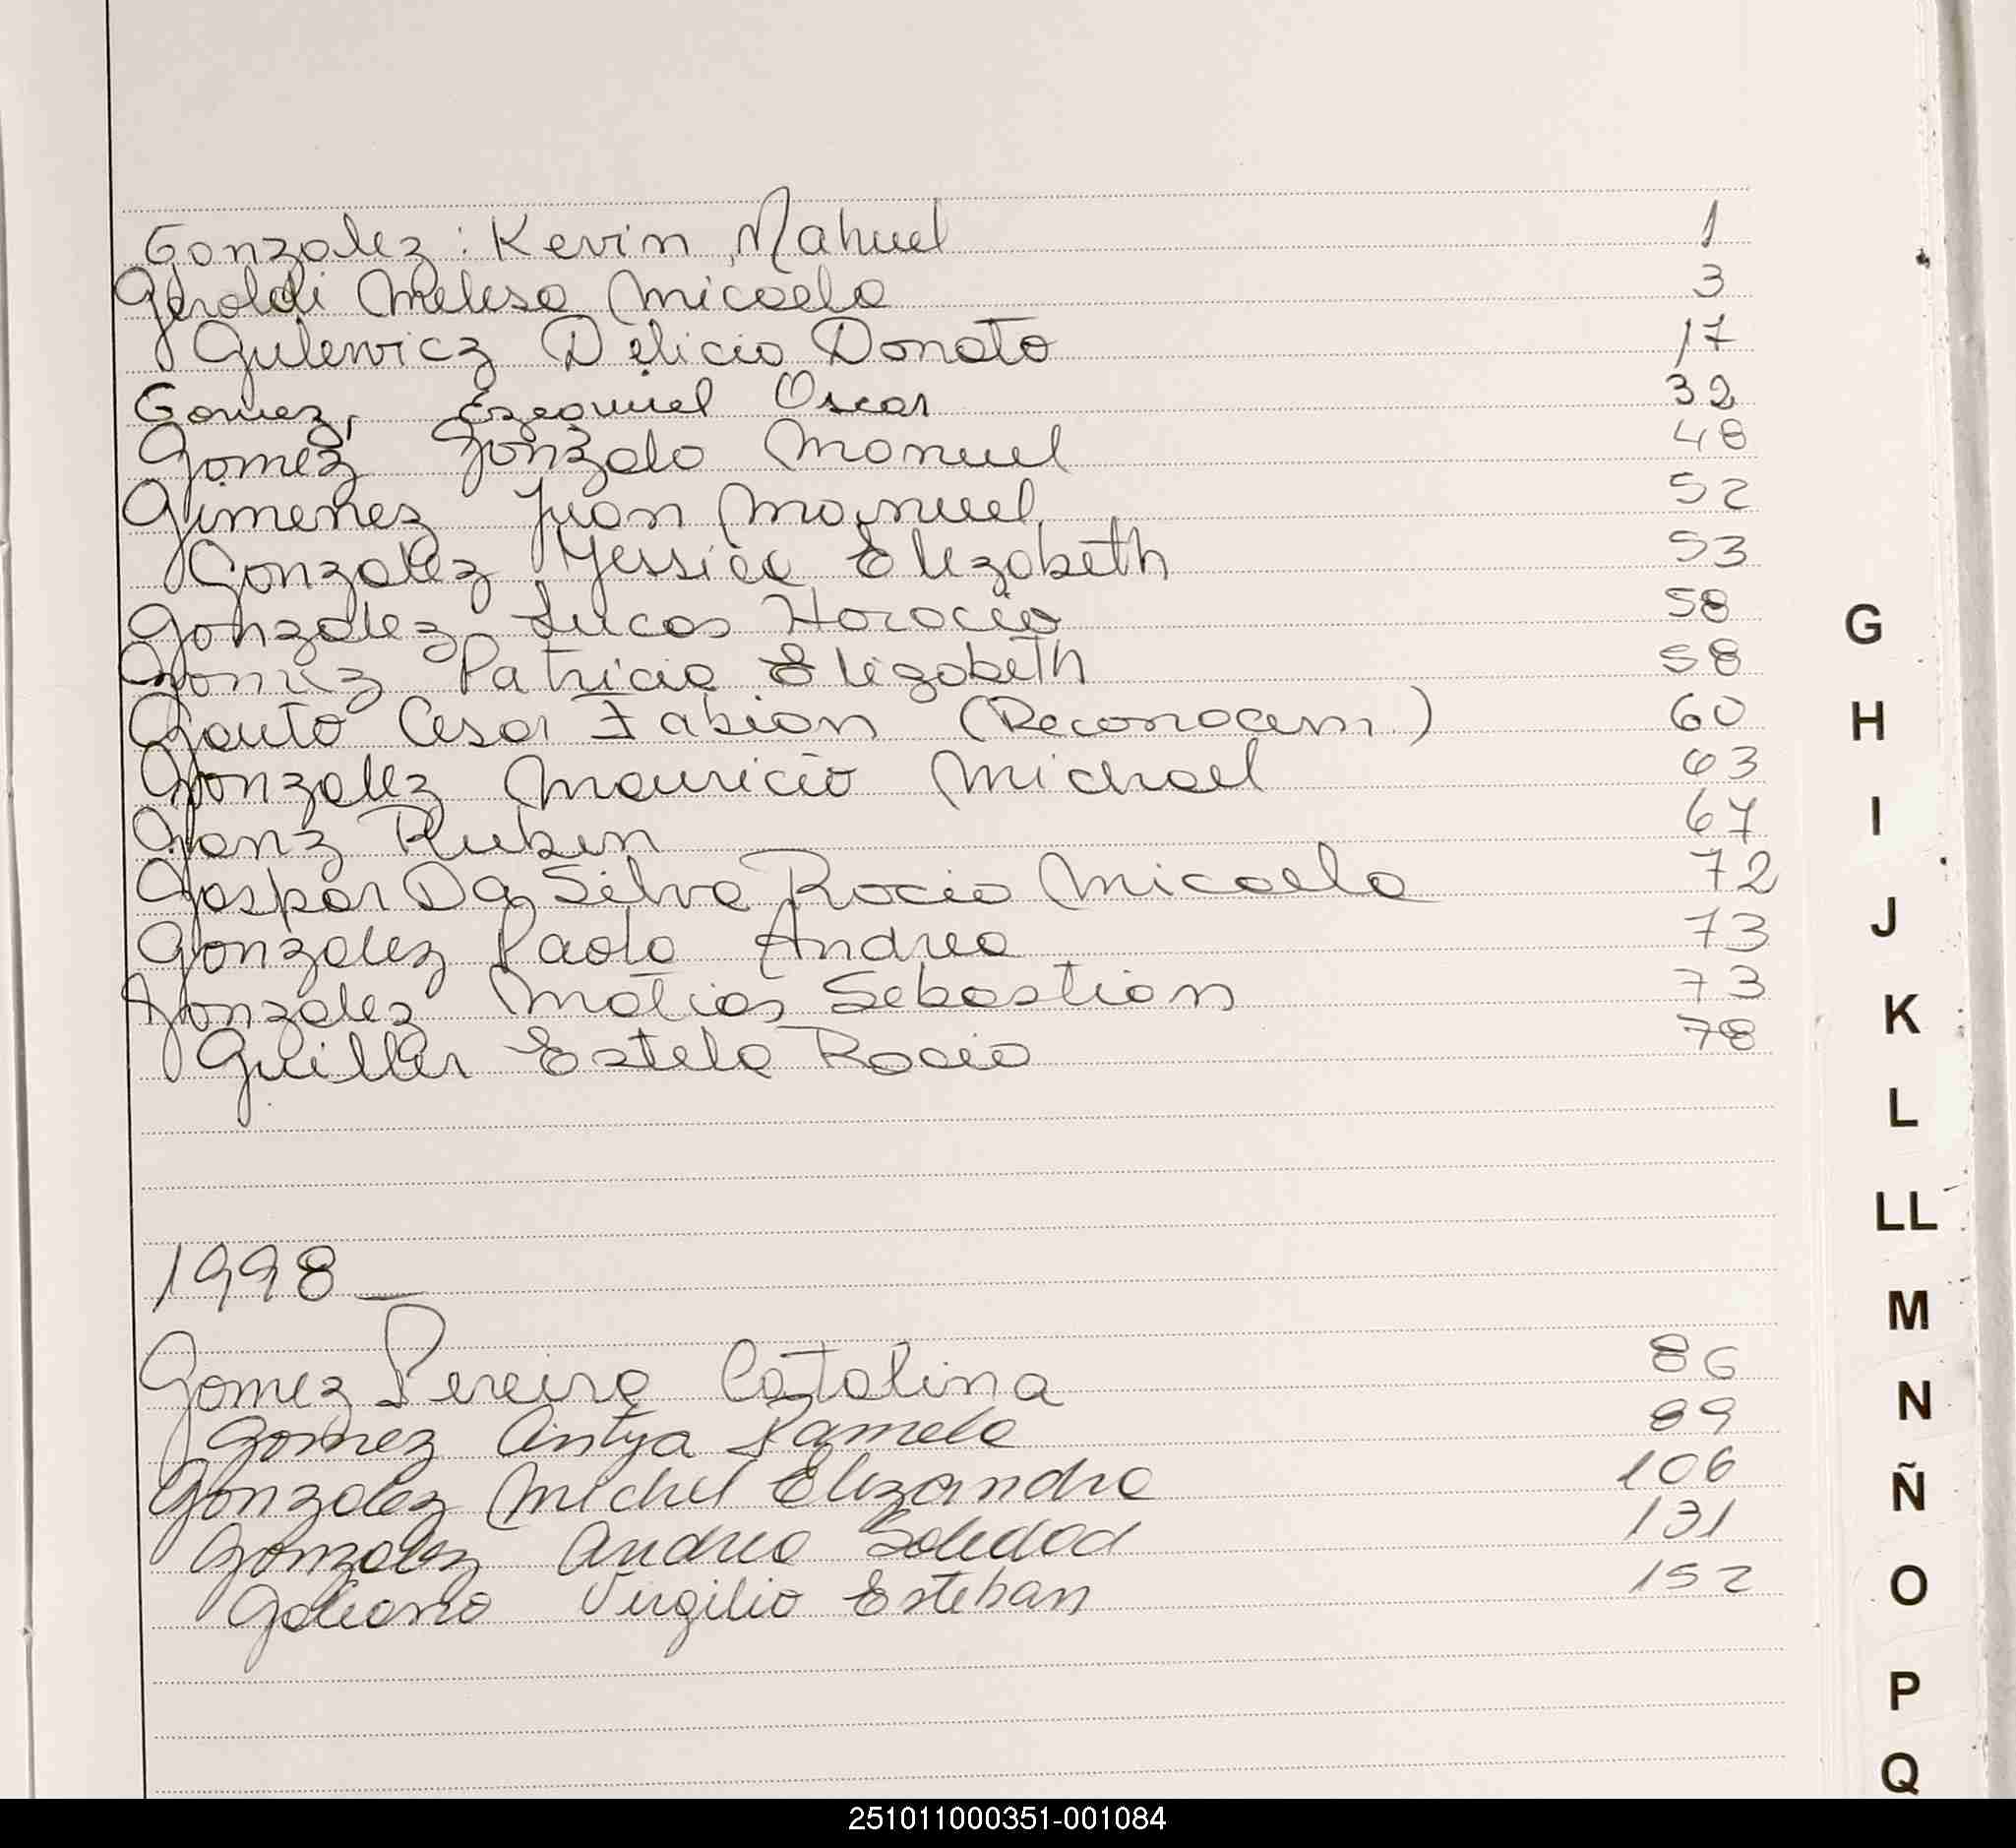 Gonzalez: Kevin Nahuel 1
Geroldi Melisa Micaela 3
Gulewicz Delicia Donato 17
Gomez, Ezequiel Oscar 32
Gomez Gonzalo Manuel 48
Gimenez Juan Manuel 52
Gonzalez Yessica Elizabeth 53
Gonzalez Lucas Horacio 58
Gomez Patricia Elizabeth 58
Gauto Cesar Fabian (Reconocem.) 60
Gonzalez Mauricio Michael 63
Ganz Ruben 67
Gaspar Da Silva Rocio Micaela 72
Gonzalez Paola Andrea 73
Gonzalez Matias Sebastian 73
Guiller Estela Rocio 78
1998_
Gomez Pereira Catalina 86
Gomez Cintya Pamela 89
Gonzalez Michel Elizandra 106
Gonzalez Andrea Soledad 131
Galeano Virgilio Esteban 152
G
H
I
J
K
L
LL
M
N
Ñ
O
P
Q
251011000351-001084